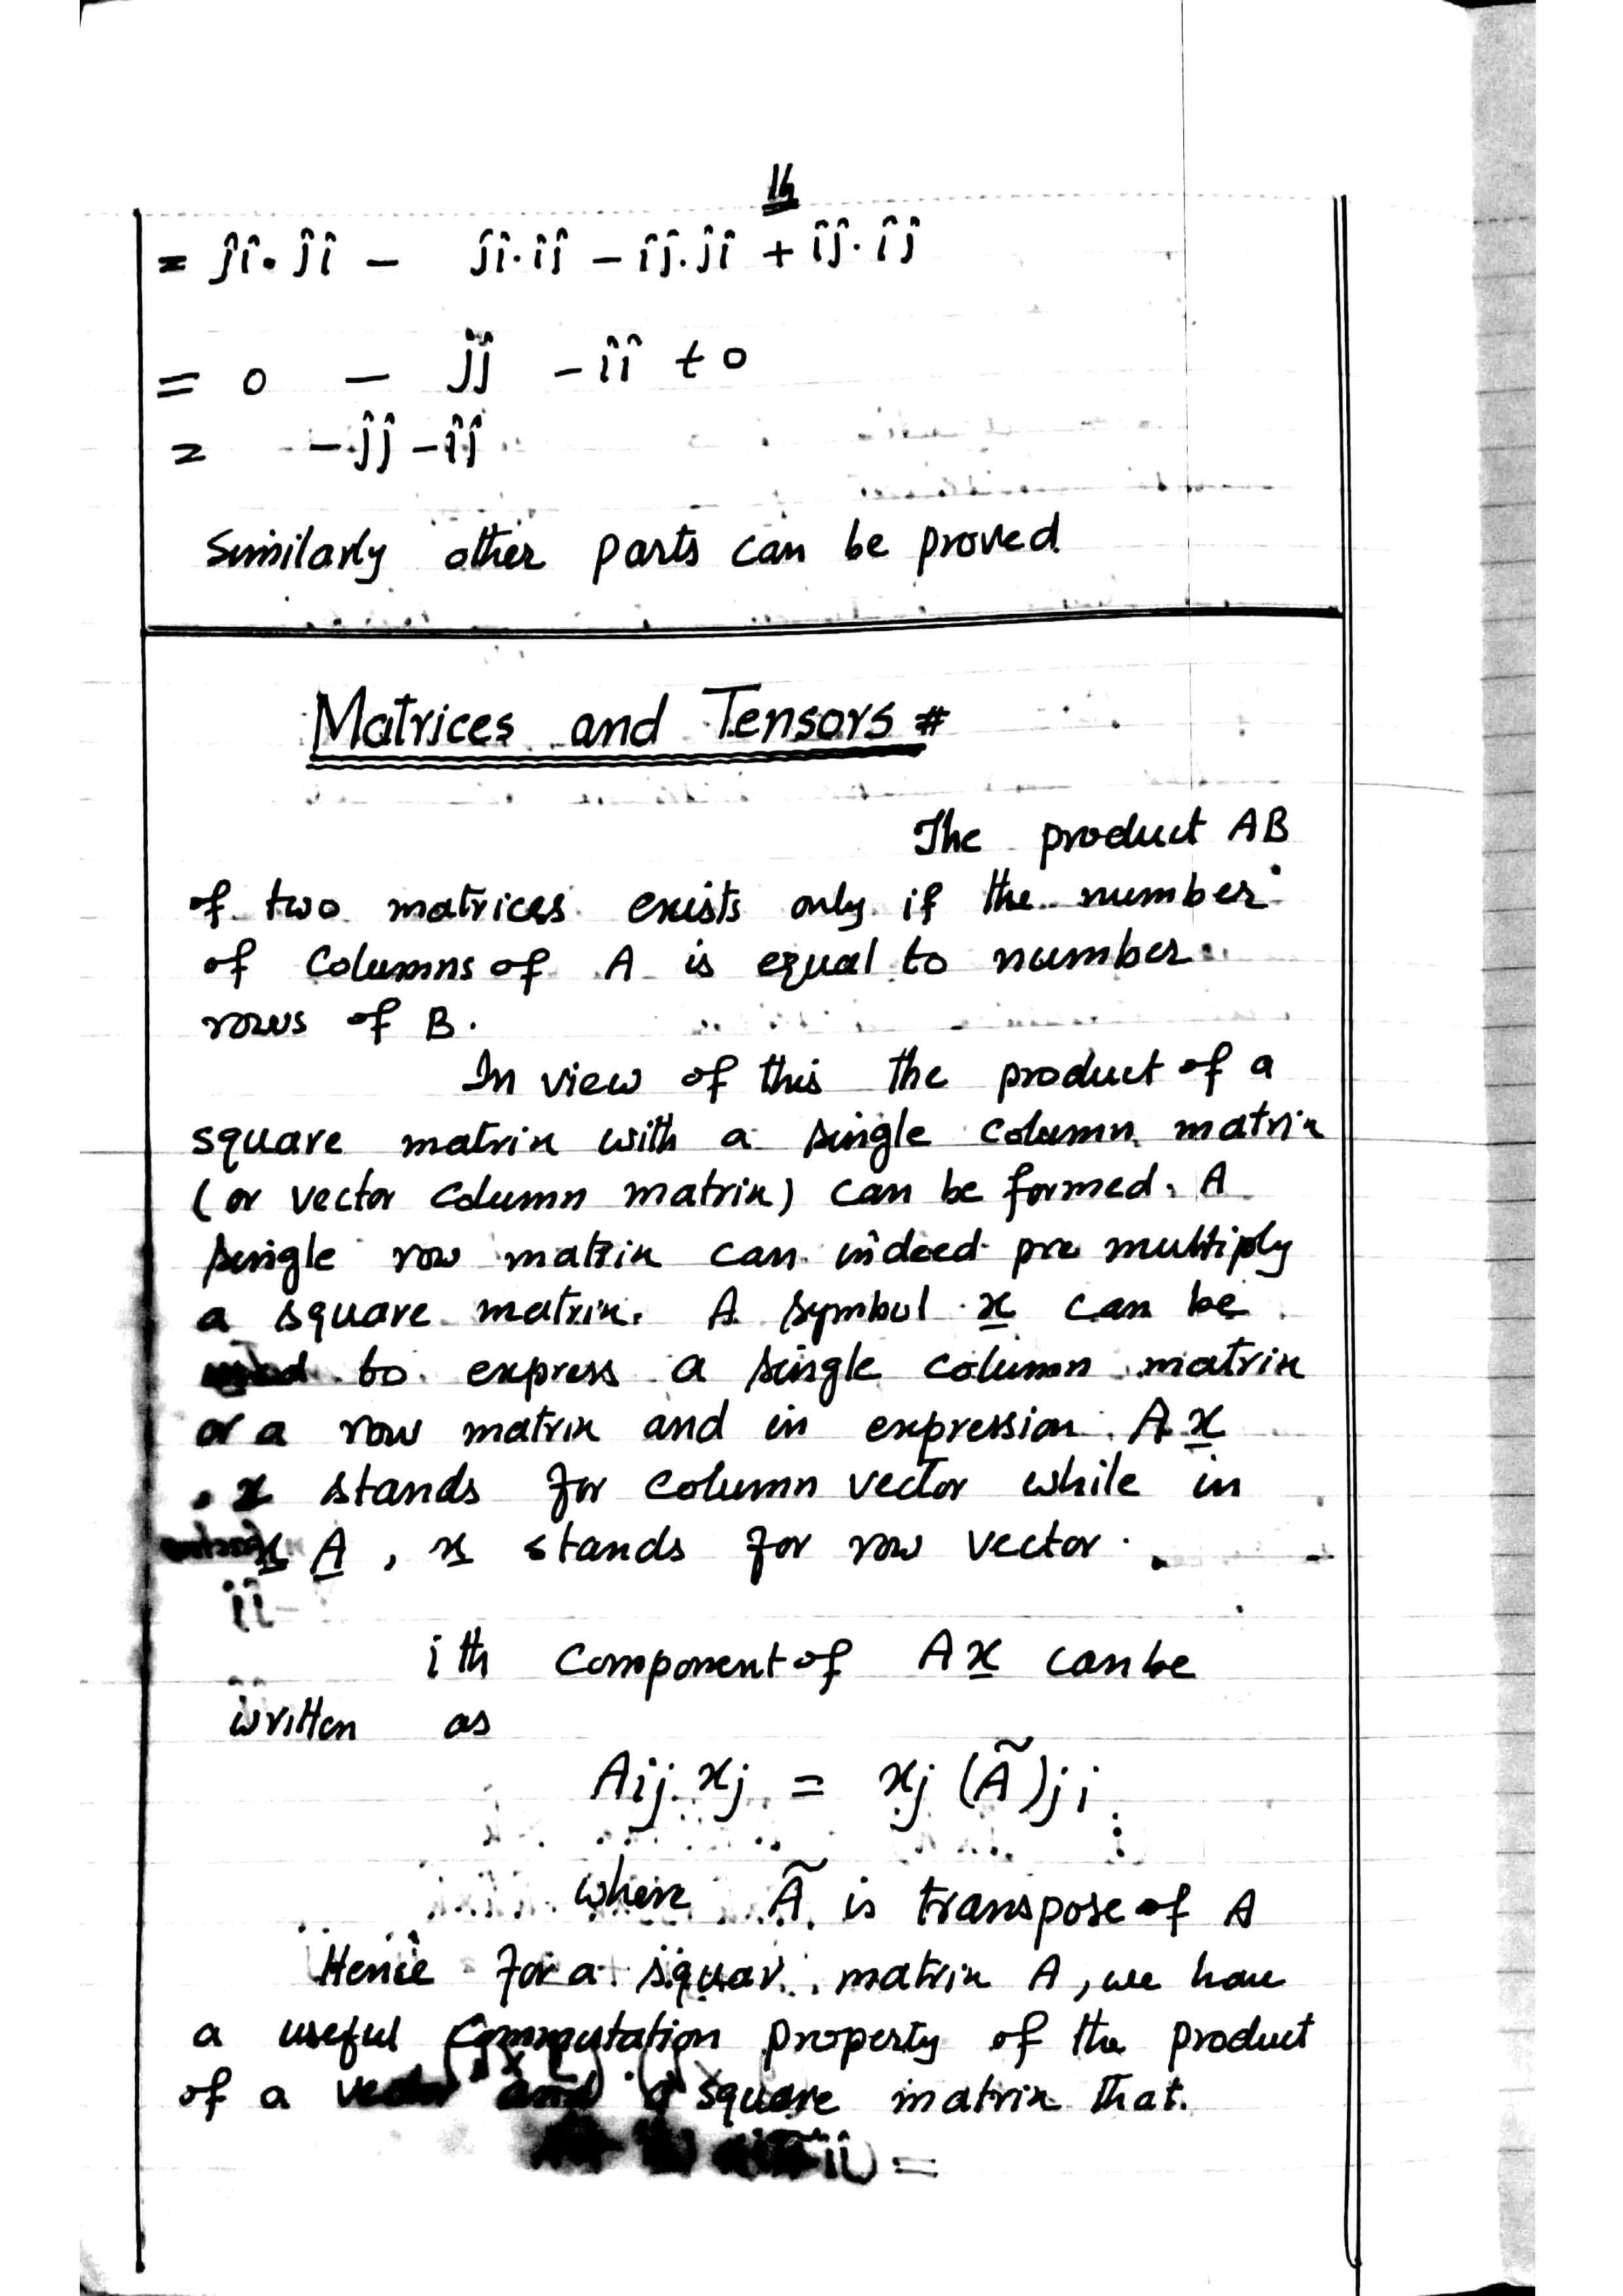 16
= ĵî·ĵî - ĵî·îĵ - îĵ·ĵî + îĵ·îĵ
= 0 - ĵĵ - îî + 0
= -ĵĵ - îî
Similarly other parts can be proved
Matrices and Tensors #
The product AB
of two matrices exists only if the number
of Columns of A is equal to number
rows of B.
In view of this the product of a
square matrix with a single column matrix
(or vector column matrix) can be formed. A
single row matrix can indeed pre multiply
a square matrix. A symbol x̲ can be
used to express a single column matrix
or a row matrix and in expression A x̲
x stands for column vector while in
x̲ A̲, x̲ stands for row vector.
i th Component of A x̲ can be
written as
Aij xj = xj (Ã)ji
where Ã is transpose of A
Hence for a squar matrix A, we have
a useful Commutation property of the product
of a vector and a square matrix that.